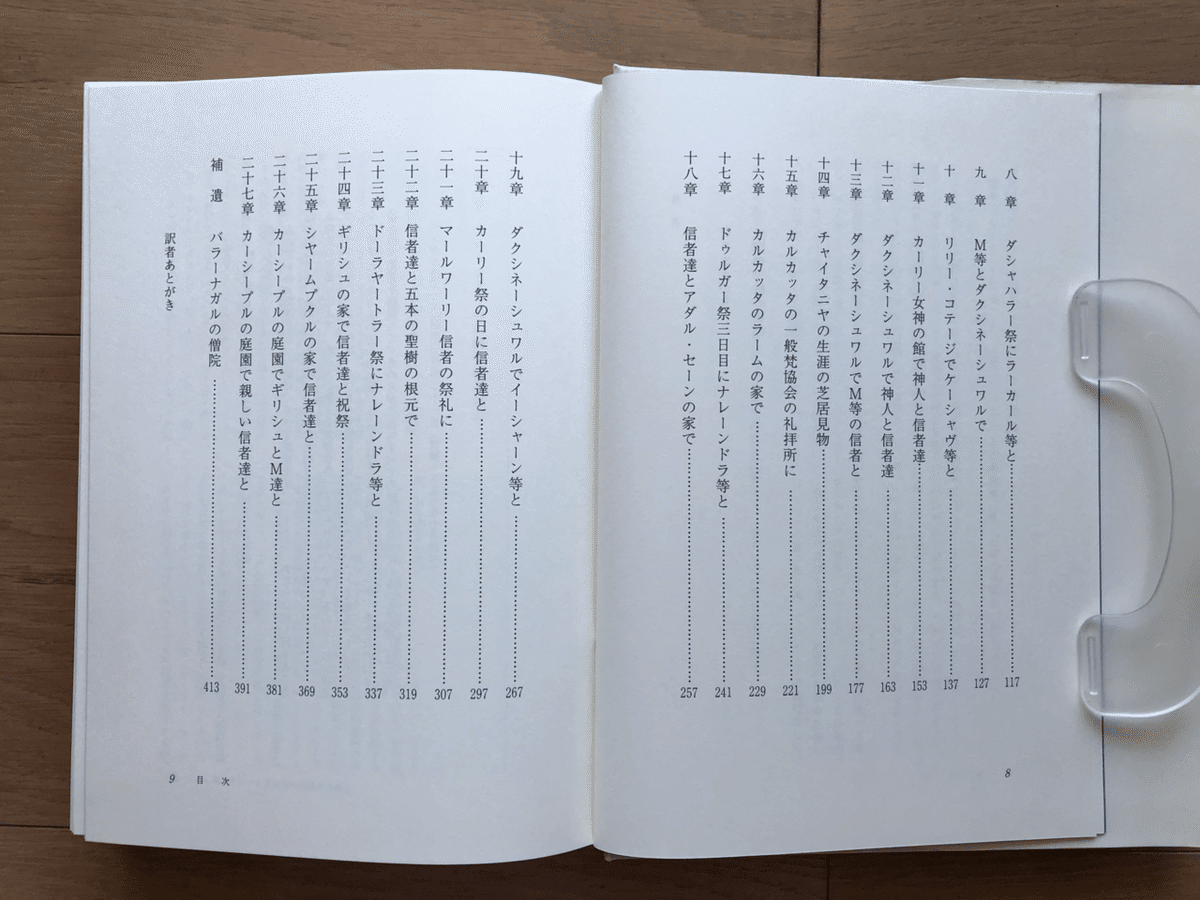 八章 ダシャハラー祭にラーカール等と……117
九章 M等とダクシネーシュワルで……127
十章 リリー・コテージでケーシャヴ等と……137
十一章 カーリー女神の館で神人と信者達……153
十二章 ダクシネーシュワルで神人と信者達……163
十三章 ダクシネーシュワルでM等の信者と……177
十四章 チャイタニヤの生涯の芝居見物……199
十五章 カルカッタの一般梵協会の礼拝所に……221
十六章 カルカッタのラームの家で……229
十七章 ドゥルガー祭三日目にナレーンドラ等と……241
十八章 信者達とアダル・セーンの家で……257
8
十九章 ダクシネーシュワルでイーシャーン等と……267
二十章 カーリー祭の日に信者達と……297
二十一章 マールワーリー信者の祭礼に……307
二十二章 信者達と五本の聖樹の根元で……319
二十三章 ドーラヤートラ祭にナレーンドラ等と……337
二十四章 ギリシュの家で信者達と祝祭……353
二十五章 シヤームプクルの家で信者達と……369
二十六章 カーシープルの庭園でギリシュとM達と……381
二十七章 カーシープルの庭園で親しい信者達と……391
補遺 バラーナガルの僧院……413
訳者あとがき
9 目次